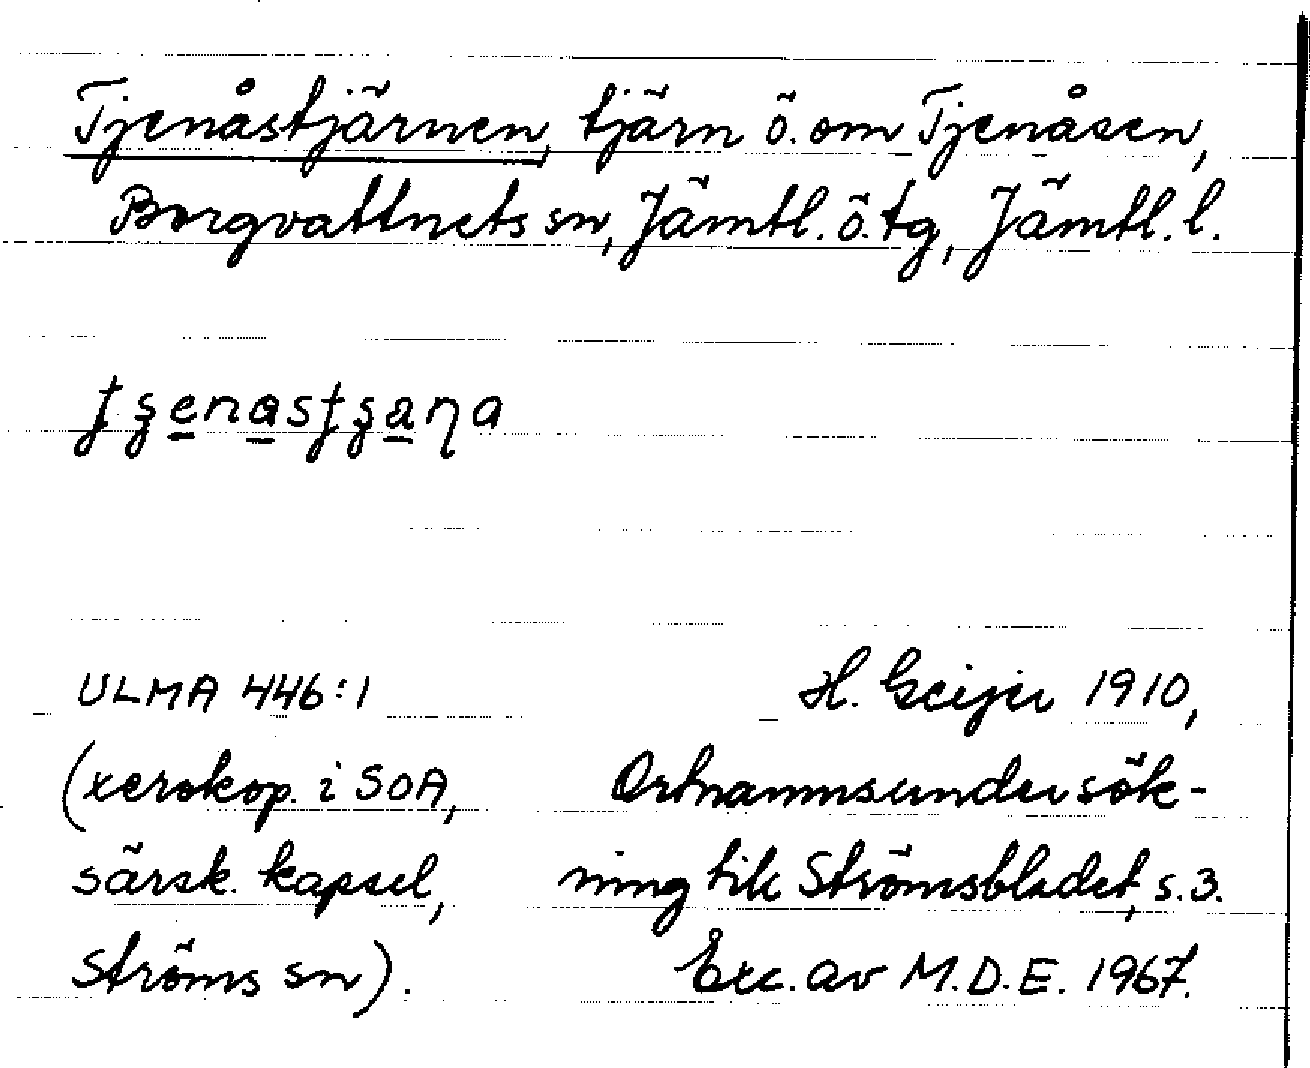 Tjenåstjärnen, tjärn ö. om Tjenåsen,
Borgvattnets sn, Jämtl. ö. tg, Jämtl. l.
ULMA 446:1
H. Geijer 1910,
(xerokop. i SOA,
Ortnamnsundersök-
särsk. kapsel,
ning till Strömsbladet, s.3.
Ströms sn).
Exc. av M.D.E. 1967.